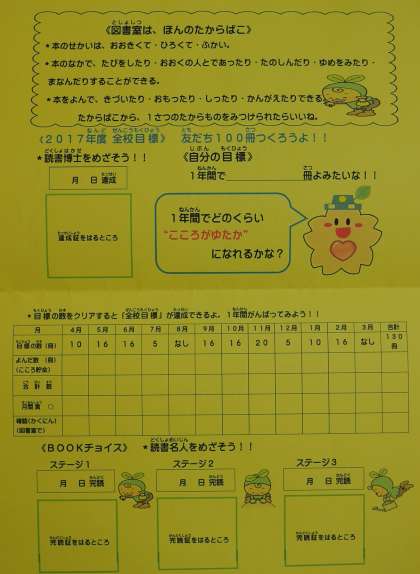 《図書室は、ほんのたからばこ》
＊本のせかいは、おおきくて・ひろくて・ふかい。
＊本のなかで、たびをしたり・おおくの人とであったり・たのしんだり・ゆめをみたり・
まなんだりすることができる。
＊本をよんで、きづいたり・おもったり・しったり・かんがえたりできる
たからばこから、１さつのたからものをみつけられたらいいね。
《２０１７年度 全校目標》 友だち１００冊つくろうよ！！
＊読書博士をめざそう！！
《自分の目標》
月 日 達成
１年間で 冊よみたいな！！
達成証をはるところ
１年間でどのくらい
“こころがゆたか”
になれるかな？
＊目標の数をクリアすると「全校目標」が達成できるよ。１年間がんばってみよう！！
月 ４月 ５月 ６月 ７月 ８月 ９月 １０月 １１月 １２月 １月 ２月 ３月 合計
目標の数（冊） １０ １６ １６ ５ なし １６ １６ ２０ ５ １０ １６ なし １３０冊
よんだ数（冊）
（こころ貯金）
合計数
月間賞 ○
確認（かくにん）
（図書室で）
《ＢＯＯＫチョイス》 ＊読書名人をめざそう！！
ステージ１ ステージ２ ステージ３
月 日 完読 月 日 完読 月 日 完読
完読証をはるところ 完読証をはるところ 完読証をはるところ